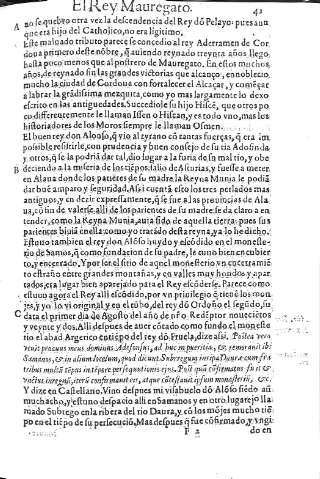 El Rey Mauregato. 42
A no se quebro otra vez la descendencia del Rey dõ Pelayo: pues aun
que era hijo del Catholico, no era ligitimo.
Este maluado tributo parece se concedio al rey Aderramen de Cor
doua primero deste nõbre, q̃ auiendo reynado treynta años llego
hasta poco menos que al postrero de Mauregato. En estos muchos
años, de reynado sin las grandes victorias que alcanço, ennoblecio,
mucho la ciudad de Cordoua con fortalecer el Alcaçar, y començar
a labrar la grãdissima mezquita, como yo mas largamente lo dexo
escrito en las antiguedades. Succediole su hijo Hiscẽ, que otros po
co differentemente le llaman Issen o Hiscan, y es todo vno, mas los
historiadores de los Moros siempre le llaman Osmen.
El buen rey don Alonso, q̃ vio al tyrano cõ tantas fuerças, q̃ era im
possible resistirle, con prudencia y buen consejo de su tia Adosinda
y otros, q̃ se la podriã dar tal, dio lugar a la furia de su mal tio, y obe
B deciendo a la miseria de los tiẽpos, salio de Asturias, y fuesse a meter
en Alaua donde los parientes de su madre la Reyna Munia le podiã
dar buẽ amparo y seguridad. Assi cuentã esto los tres perlados mas
antiguos, y en dezir expressamẽte, q̃ se fue a las prouincias de Ala
ua, cõ fin de valerse alli de los parientes de su madre se da claro a en
tender, como la Reyna Munia, auia sido de aquella tierra: pues sus
parientes biuiã en ella: como yo tratãdo desta reyna, ya lo he dicho.
Estuuo tambien el rey don Alõso huydo y escõdido en el moneste-
rio de Samos, q̃ como fundacion de su padre, le tuuo bien encubier
to, y encerrado. Y por ser el sitio de aquel monesterio vn encerramiẽ
to estraño entre grandes montañas, y en valles muy hondos y apar
tados, era lugar bien aparejado para el Rey escõderse. Parece como
estuuo agora el Rey alli escõdido, por vn priuilegio q̃ tienẽ los mon
jes, y yo lo vi original, y en el su hijo, del rey dõ Ordoño el segũdo, su
C data el primer dia de Agosto del año de nr̃o Redẽptor nouecietos
y veynte y dos. Alli despues de auer cõtado como fundo el moneste
rio el abad Argerico en tiẽpo del rey dõ Fruela, dize assi.
Y dize en Castellano. Vino despues mi visabuelo dõ Alõso siẽdo aũ
muchacho, y estuuo despacio alli en Samanos y en otro lugarejo lla
mado Subrego en la ribera del rio Daura, y cõ los mõjes mucho tiẽ
po en el tiẽpo de su persecuciõ, Mas despues q̃ fue cõfirmado, y vngi-
F 2 do en